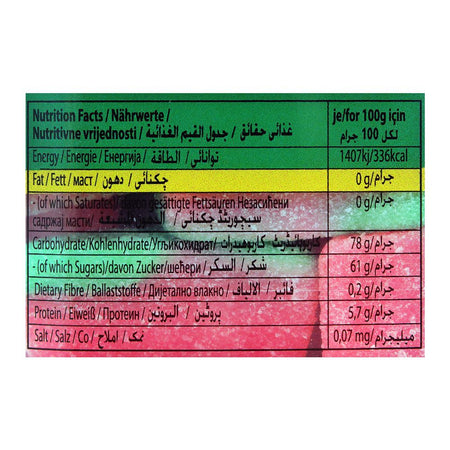 Nutrition Facts / Nährwerte /
Nutritivne vrijednosti / غذائی حقائق / جدول القيم الغذائية
je/for 100g için
لكل 100 جرام
Energy / Energie / Енергија / توانائی / الطاقة 1407kj/336kcal
Fat / Fett / маст / چکنائی / دهون 0 g/جرام
- (of which Saturates)/davon gesättigte Fettsäuren Незасићени
садржај масти / سیچوریٹڈ چکنائی / الدهون المشبعة 0 g/جرام
Carbohydrate/Kohlenhydrate/Угљикохидрат/ کاربوہائیڈریٹ/كاربوهيدرات 78 g/جرام
- (of which Sugars)/davon Zucker/шећери / شکر / السكر 61 g/جرام
Dietary Fibre / Ballaststoffe / Дијетално влакно / فائبر / الالياف 0,2 g/جرام
Protein / Eiweiß / Протеин / پروٹین / البروتين 5,7 g/جرام
Salt / Salz / Со / نمک / املاح 0,07 mg/ميليجرام